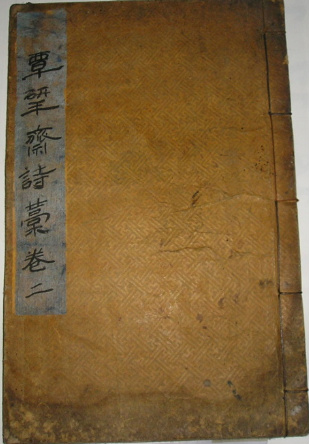 覃揅齋詩藁卷二